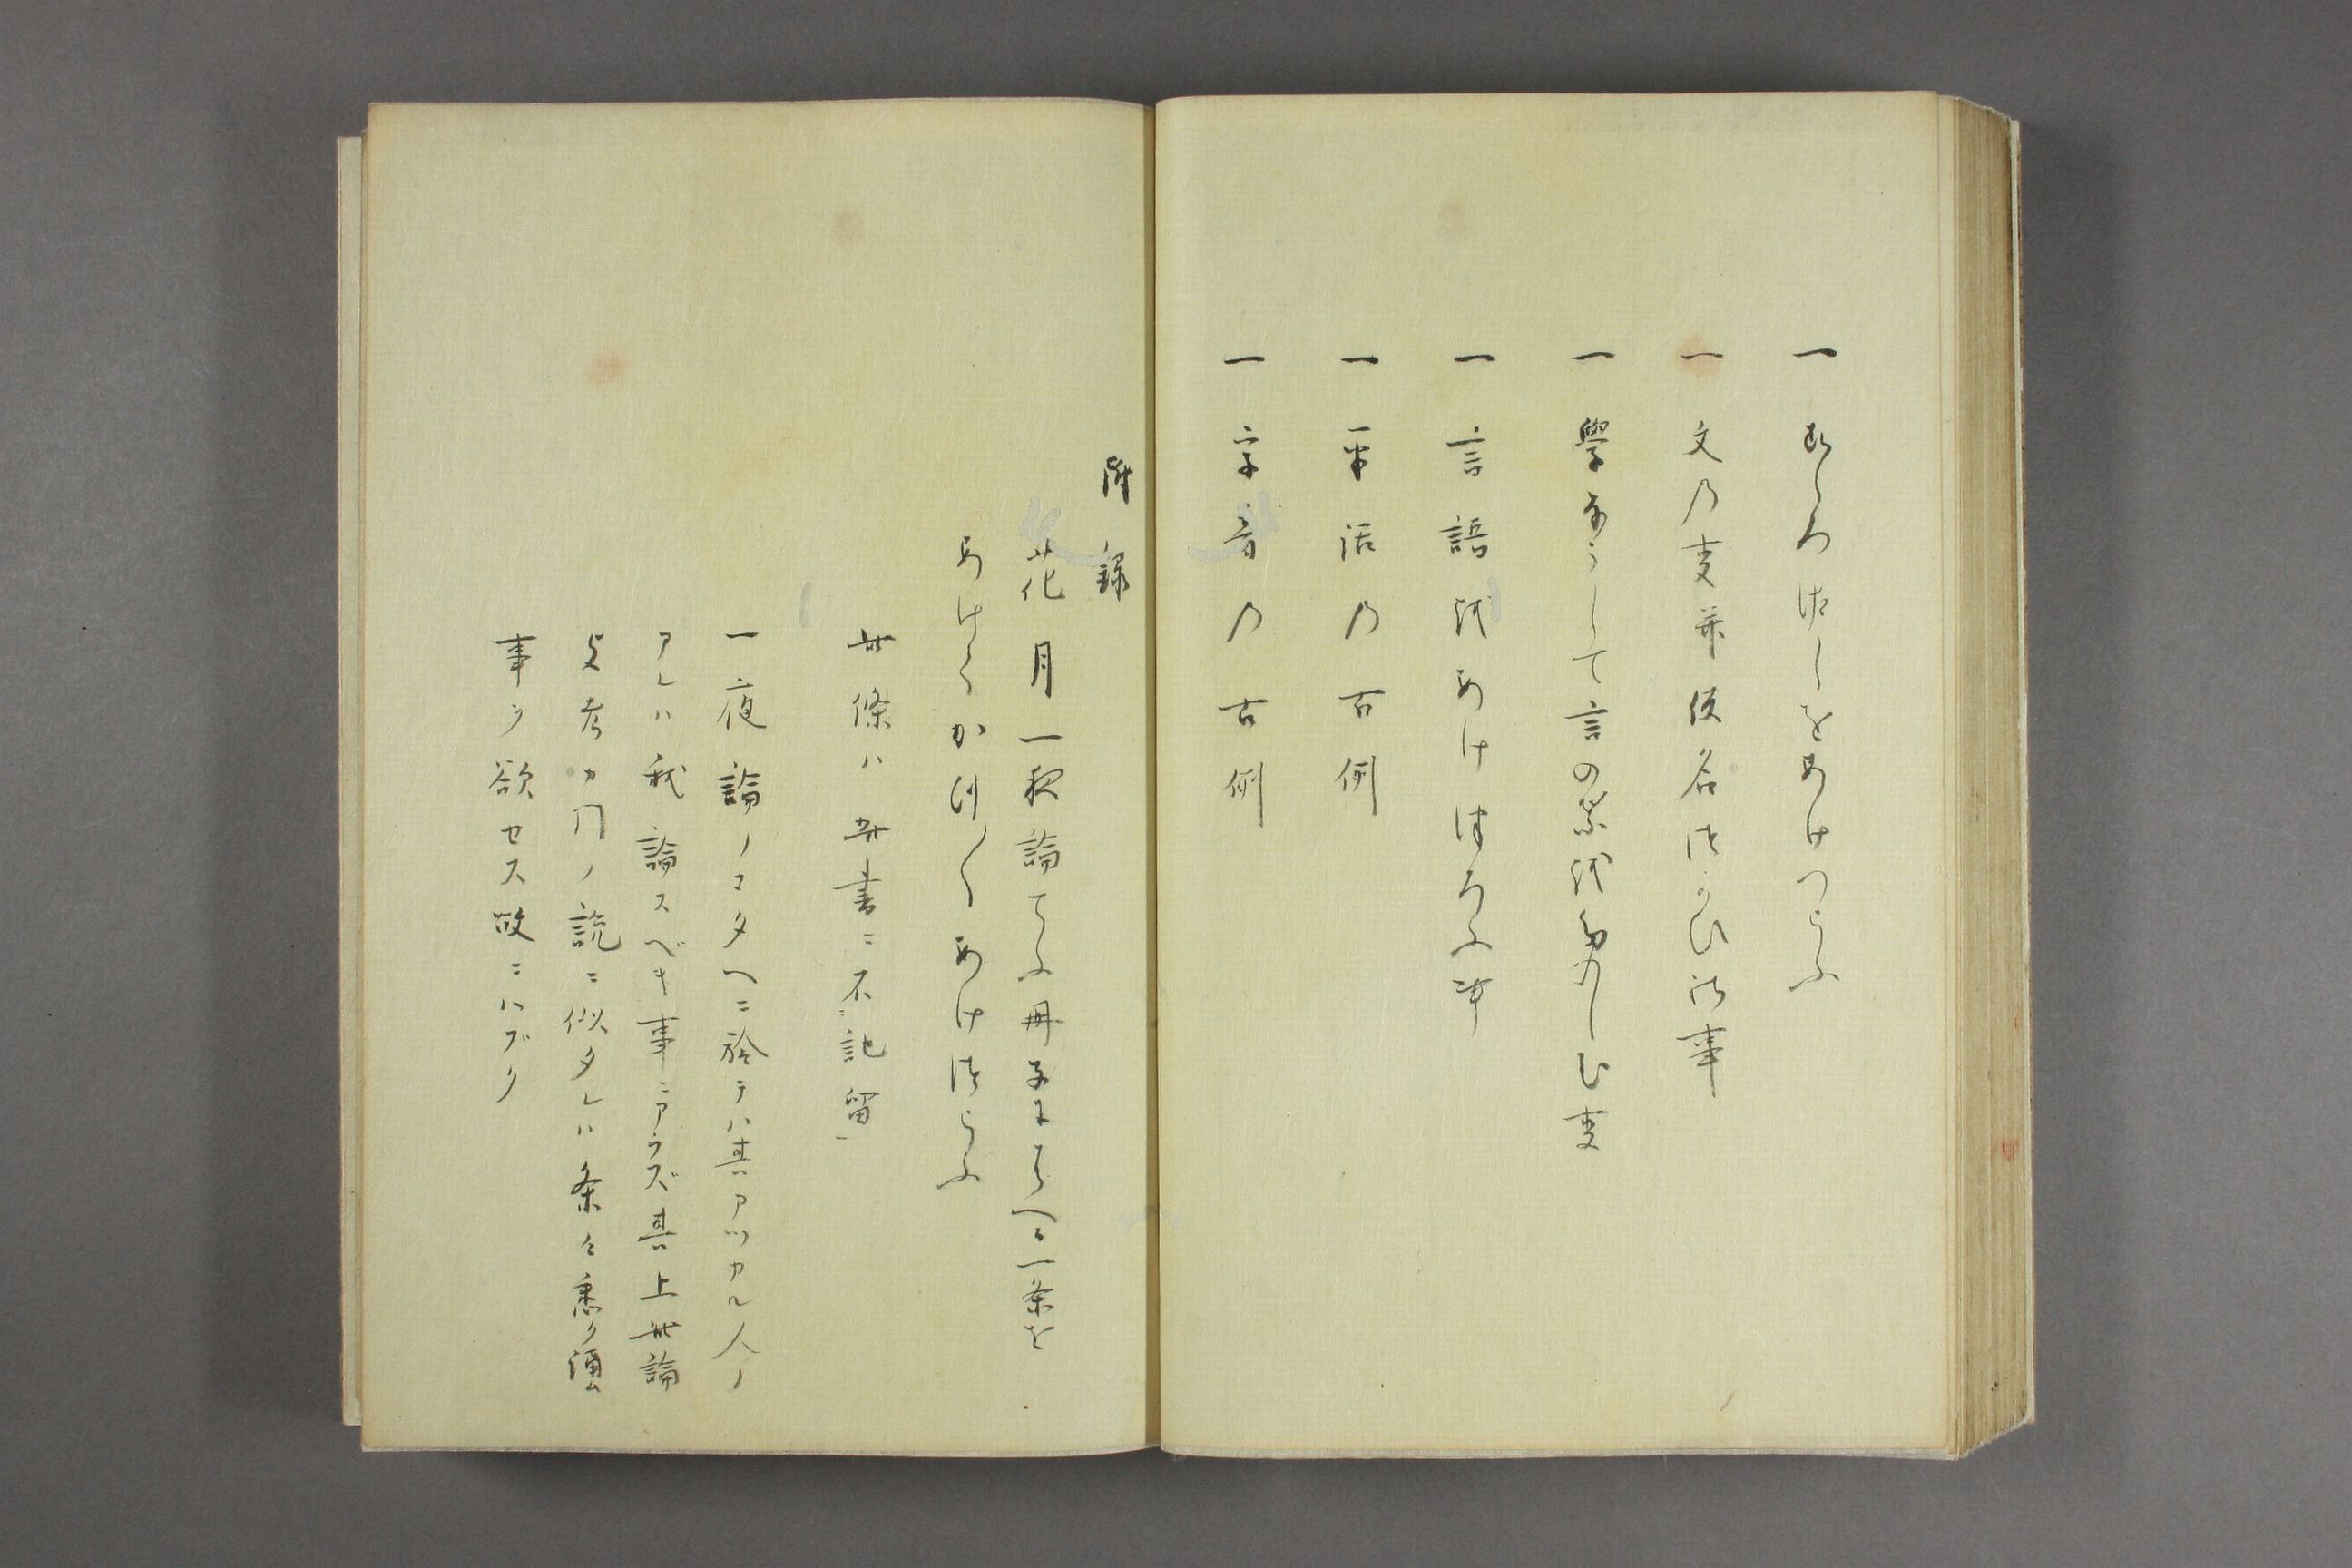 一 をあけつらふ
一 文乃叓并假名つかひ乃事
一 學ようして言の葉をたのしむ叓
一 言語をあけつろふ事
一 平活乃古例
一 字音乃古例
附録
花月一夜論てふ冊子に 一条を
あけ あけつらふ
此條ハ此書ニ不記留
一夜論ノコタヘニ於テハ其アツカル人ノ
アレハ我論スベキ事ニアラズ其上此論
真考カ門ノ説ニ似タレハ条々悉ク
事ヲ欲セス故ニハブク